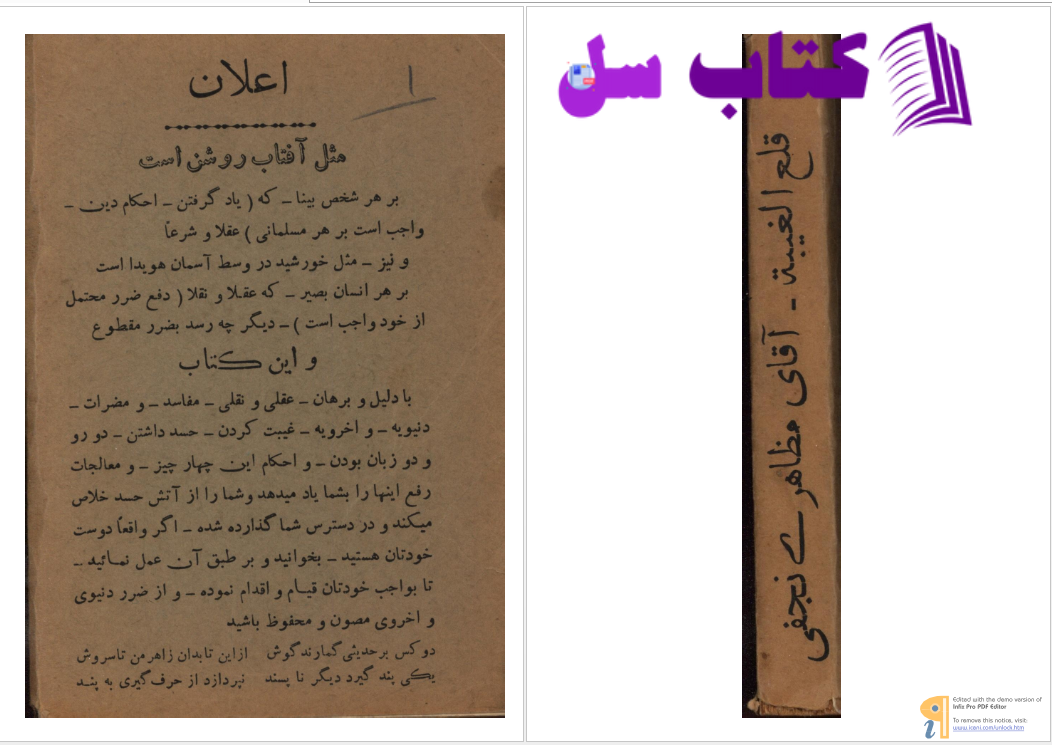 اعلان
۱
مثل آفتاب روشن است
بر هر شخص بینا ــ که ( یاد گرفتن ــ احکام دین ــ
واجب است بر هر مسلمانی ) عقلا و شرعاً
و نیز ــ مثل خورشید در وسط آسمان هویدا است
بر هر انسان بصیر ــ که عقلا و نقلا ( دفع ضرر محتمل
از خود واجب است ) ــ دیگر چه رسد بضرر مقطوع
و این کتاب
با دلیل و برهان ــ عقلی و نقلی ــ مفاسد ــ و مضرات ــ
دنیویه ــ و اخرویه ــ غیبت کردن ــ حسد داشتن ــ دو رو
و دو زبان بودن ــ و احکام این چهار چیز ــ و معالجات
رفع اینها را بشما یاد میدهد وشما را از آتش حسد خلاص
میکند و در دسترس شما گذارده شده ــ اگر واقعاً دوست
خودتان هستید ــ بخوانید و بر طبق آن عمل نمائید ــ
تا بواجب خودتان قیام و اقدام نموده ــ و از ضرر دنیوی
و اخروی مصون و محفوظ باشید
دو کس برحدیثی گمارند گوش ازاین تابدان زاهرمن تاسروش
یکی پند گیرد دیگر نا پسند نپردازد از حرف گیری به پند
کتاب سل
قلع الغیبة ــ آقای مظاهری نجفی
Edited with the demo version of
Infix Pro PDF Editor
To remove this notice, visit:
www.iceni.com/unlock.htm